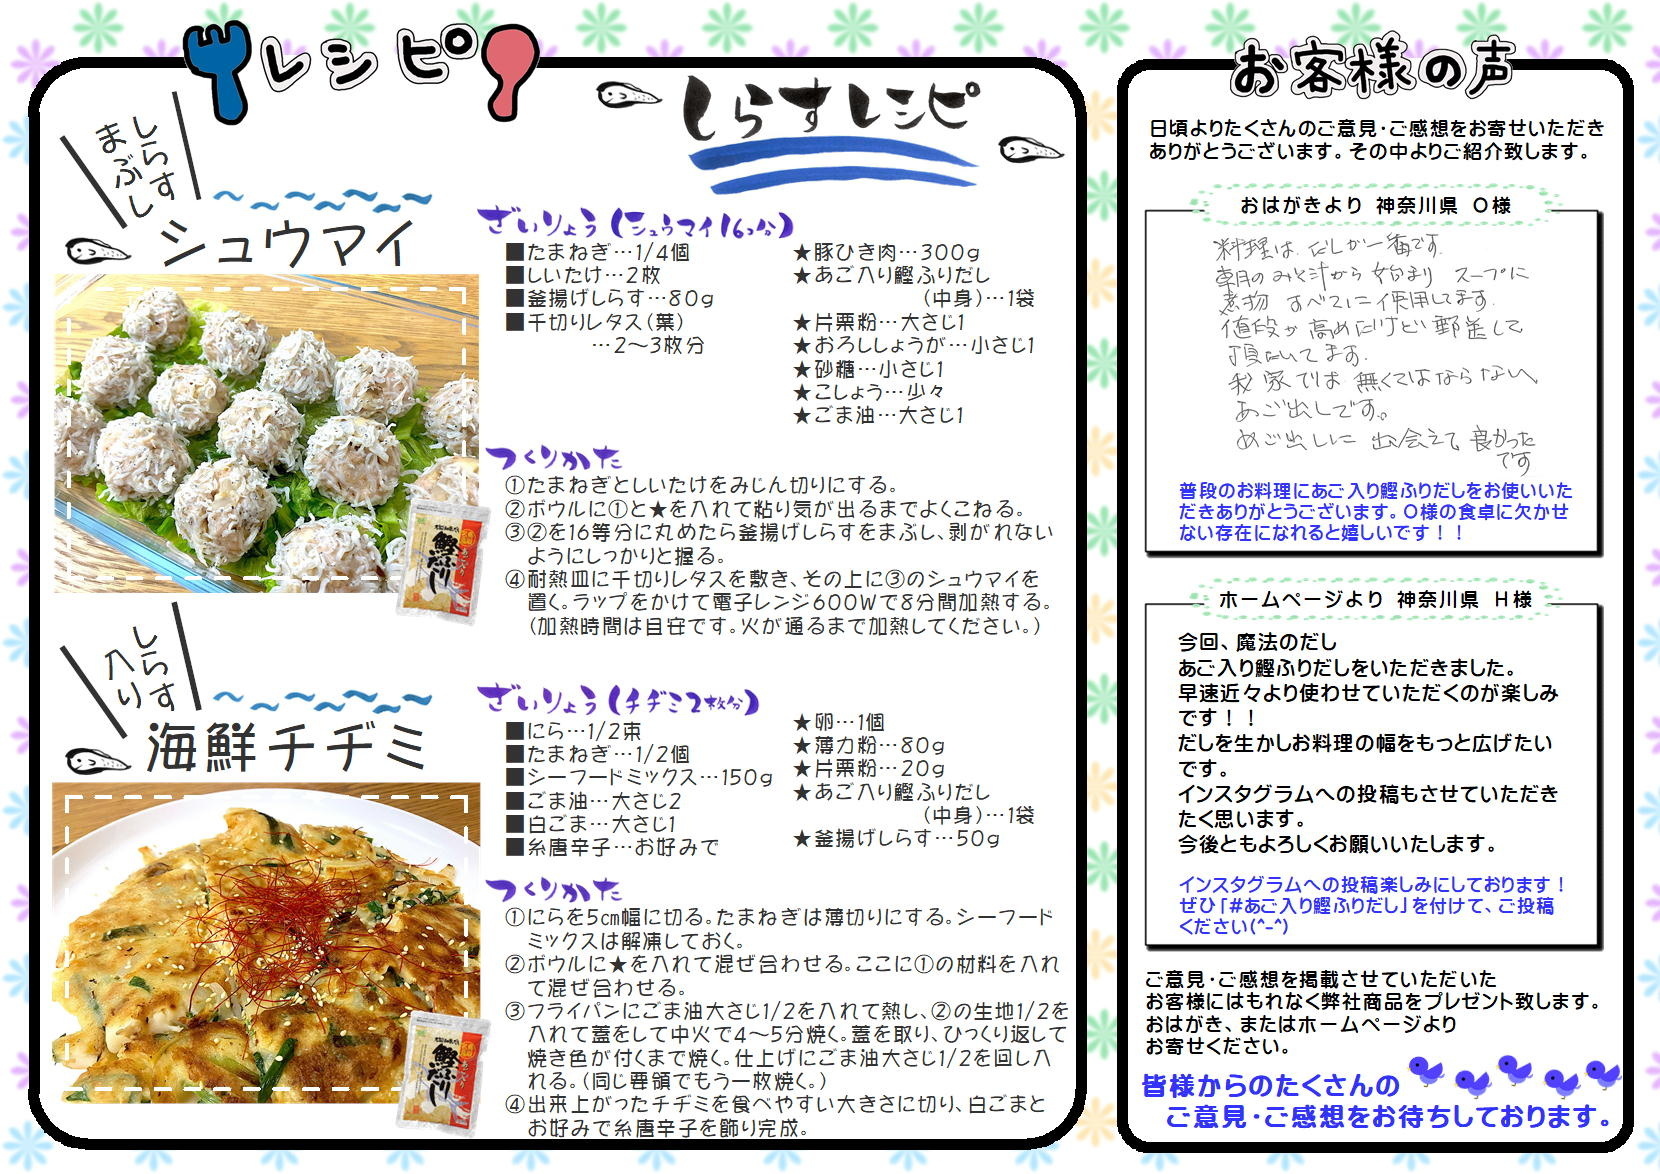 レシピ
しらすレシピ
しらす
まぶし
シュウマイ
ざいりょう(シュウマイ16コ分)
■たまねぎ…1/4個
■しいたけ…2枚
■釜揚げしらす…80g
■千切りレタス(葉)
…2～3枚分
★豚ひき肉…300g
★あご入り鰹ふりだし
(中身)…1袋
★片栗粉…大さじ1
★おろししょうが…小さじ1
★砂糖…小さじ1
★こしょう…少々
★ごま油…大さじ1
つくりかた
①たまねぎとしいたけをみじん切りにする。
②ボウルに①と★を入れて粘り気が出るまでよくこねる。
③②を16等分に丸めたら釜揚げしらすをまぶし、剥がれない
ようにしっかりと握る。
④耐熱皿に千切りレタスを敷き、その上に③のシュウマイを
置く。ラップをかけて電子レンジ600Wで8分間加熱する。
(加熱時間は目安です。火が通るまで加熱してください。)
鰹ふりだし
しらす
入り
海鮮チヂミ
ざいりょう(チヂミ2枚分)
■にら…1/2束
■たまねぎ…1/2個
■シーフードミックス…150g
■ごま油…大さじ2
■白ごま…大さじ1
■糸唐辛子…お好みで
★卵…1個
★薄力粉…80g
★片栗粉…20g
★あご入り鰹ふりだし
(中身)…1袋
★釜揚げしらす…50g
つくりかた
①にらを5cm幅に切る。たまねぎは薄切りにする。シーフード
ミックスは解凍しておく。
②ボウルに★を入れて混ぜ合わせる。ここに①の材料を入れ
て混ぜ合わせる。
③フライパンにごま油大さじ1/2を入れて熱し、②の生地1/2を
入れて蓋をして中火で4～5分焼く。蓋を取り、ひっくり返して
焼き色が付くまで焼く。仕上げにごま油大さじ1/2を回し入
れる。(同じ要領でもう一枚焼く。)
④出来上がったチヂミを食べやすい大きさに切り、白ごまと
お好みで糸唐辛子を飾り完成。
鰹ふりだし
お客様の声
日頃よりたくさんのご意見・ご感想をお寄せいただき
ありがとうございます。その中よりご紹介致します。
おはがきより 神奈川県 O様
料理は、だしが一番です。
朝のみそ汁から始まり スープに
煮物 すべてに使用してます。
値段が高めだけど郵送して
頂いてます。
我家では無くてはならない、
あご出しです。
あご出しに出会えて良かった
です
普段のお料理にあご入り鰹ふりだしをお使いいた
だきありがとうございます。O様の食卓に欠かせ
ない存在になれると嬉しいです！！
ホームページより 神奈川県 H様
今回、魔法のだし
あご入り鰹ふりだしをいただきました。
早速近々より使わせていただくのが楽しみ
です！！
だしを生かしお料理の幅をもっと広げたい
です。
インスタグラムへの投稿もさせていただき
たく思います。
今後ともよろしくお願いいたします。
インスタグラムへの投稿楽しみにしております！
ぜひ「#あご入り鰹ふりだし」を付けて、ご投稿
ください(^-^)
ご意見・ご感想を掲載させていただいた
お客様にはもれなく弊社商品をプレゼント致します。
おはがき、またはホームページより
お寄せください。
皆様からのたくさんの
ご意見・ご感想をお待ちしております。